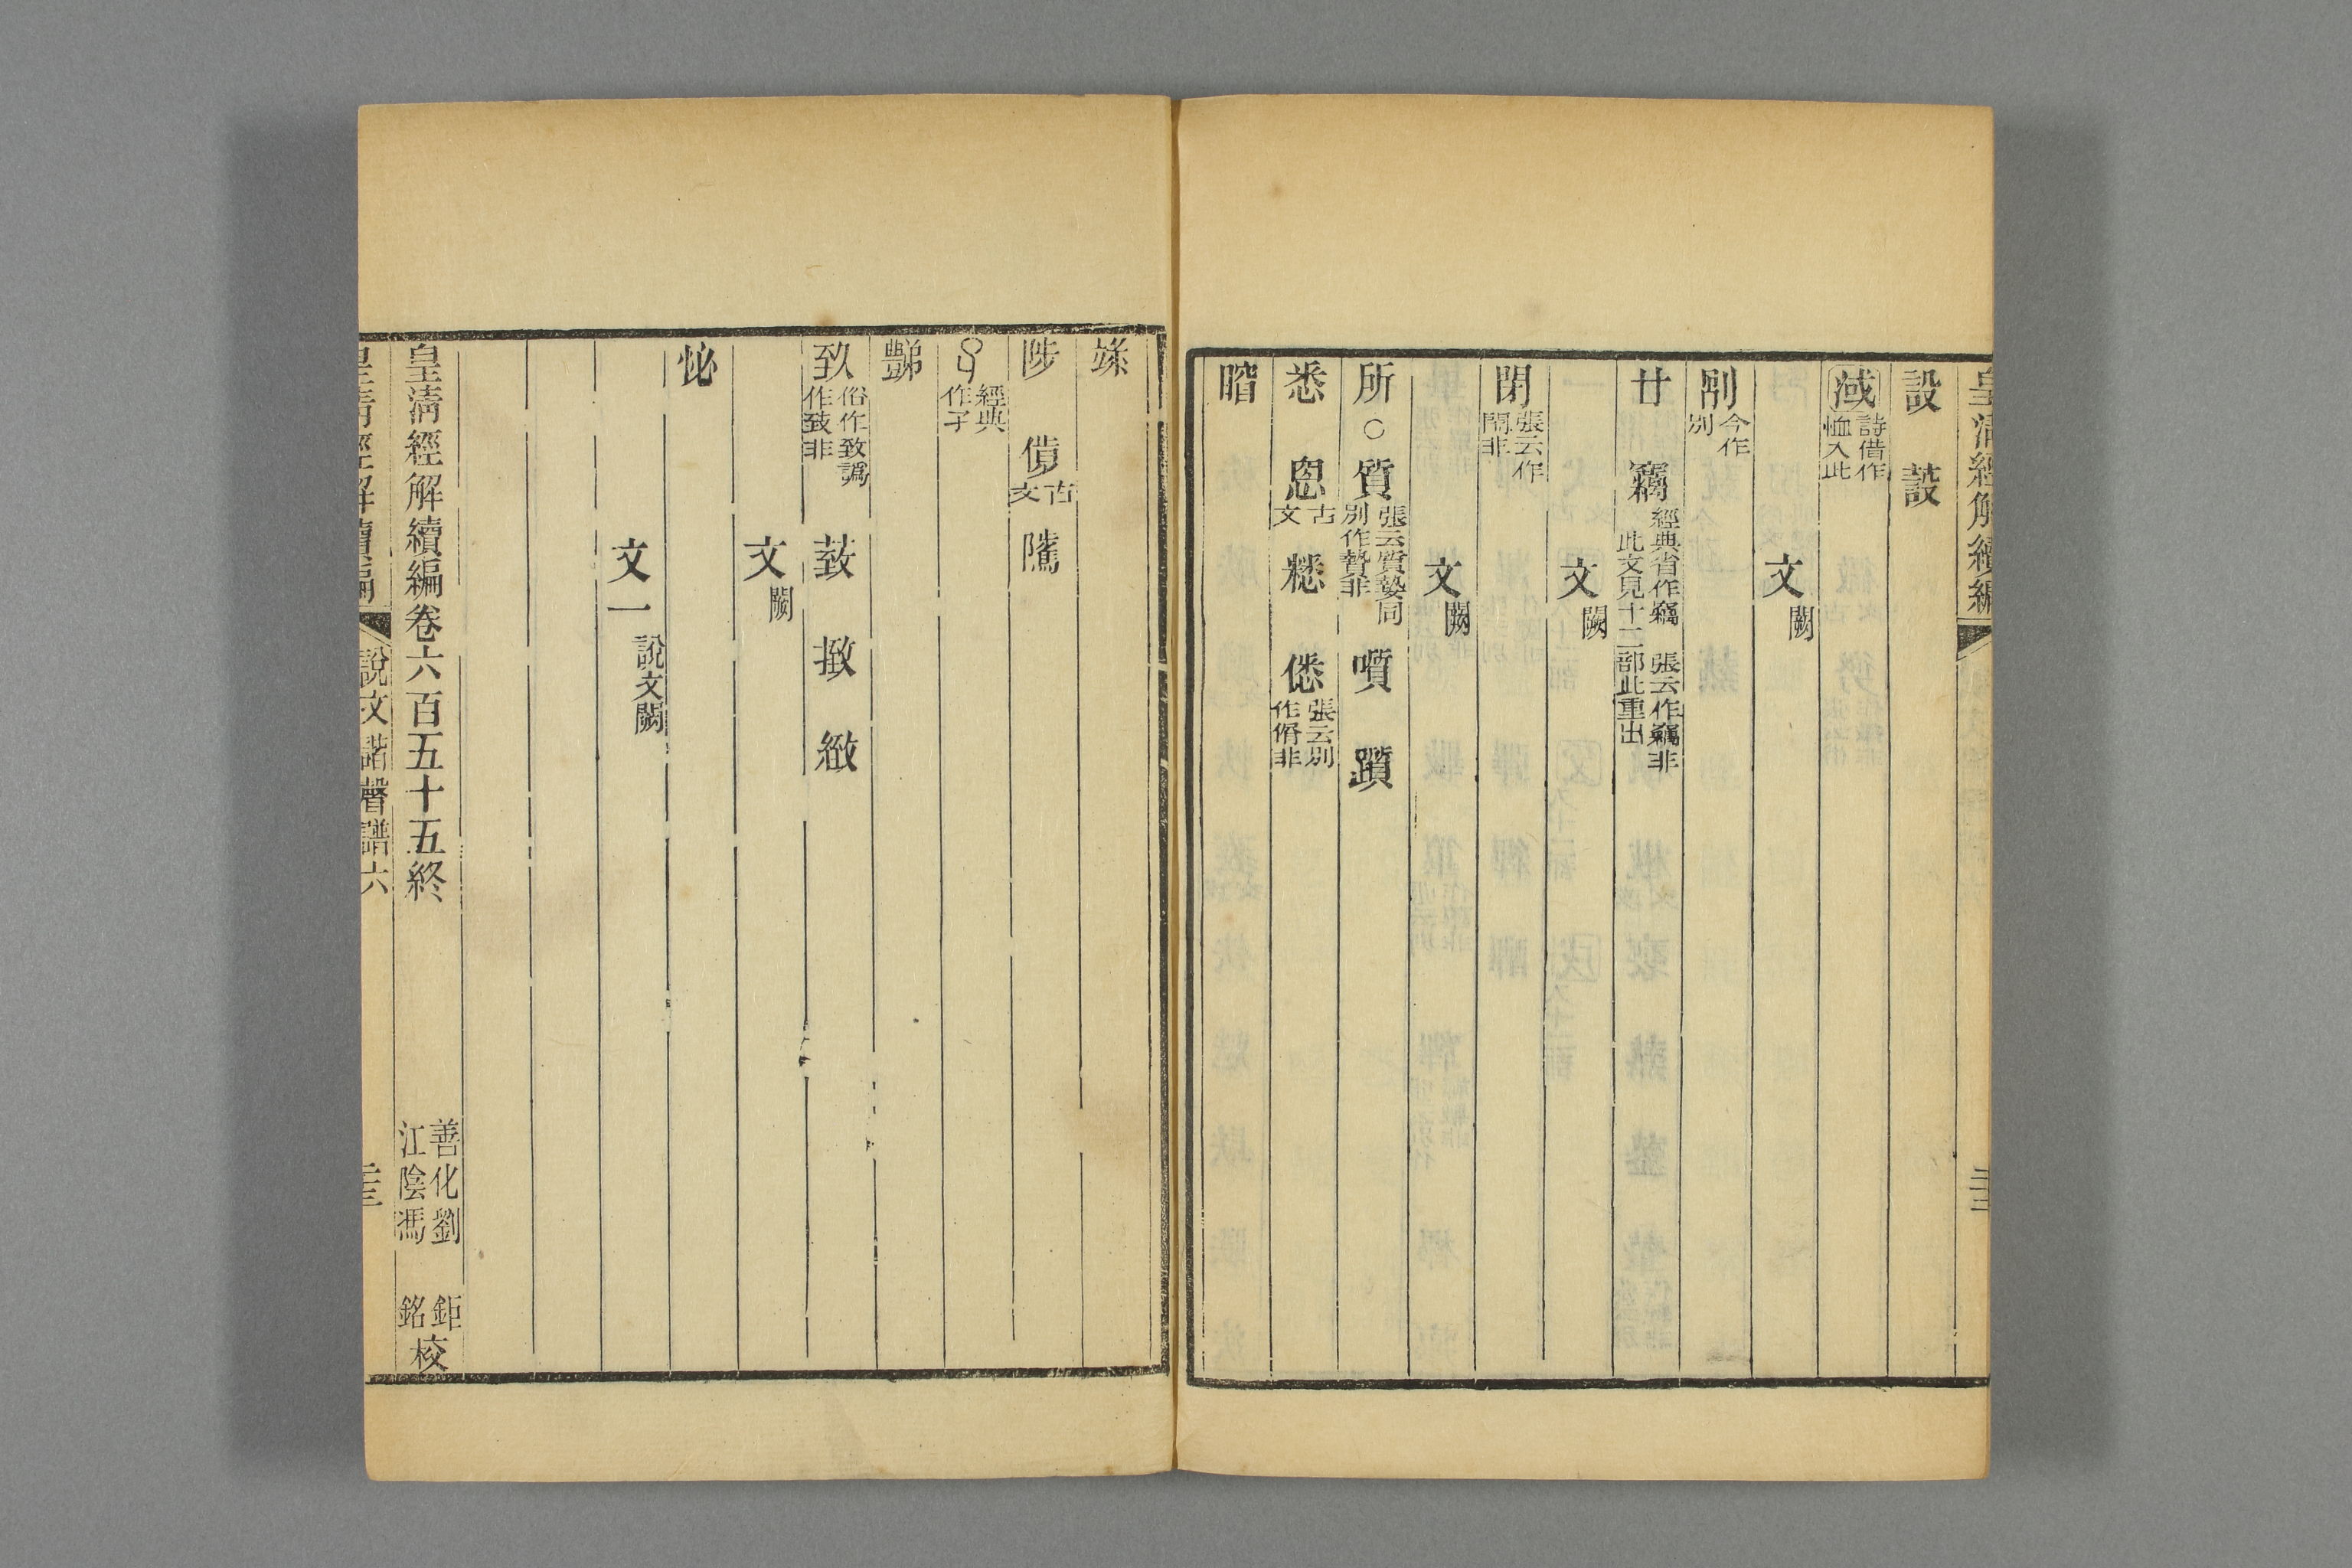 皇清經解續編
設 蔎
淢 詩借作恤入此
文 闕
𠛰 今作別
廿 竊 經典省作竊 張云作竊非 此文見十二部此重出
文 闕
閉 張云作閇非
文 闕
所 ○ 質 張云質䞇同別作贄非 噴 躓
悉 恖 古文 糝 僁 張云別作偦非
㬱
陟 𢔌 古文 騭
經典作孑
豑
𦤶 俗作致譌作致非 䓡 撴 緻
文 闕
怭
文一 說文闕
皇清經解續編卷六百五十五終
善化劉鉅
江陰馮銘
校
皇清經解續編 說文諧聲譜六